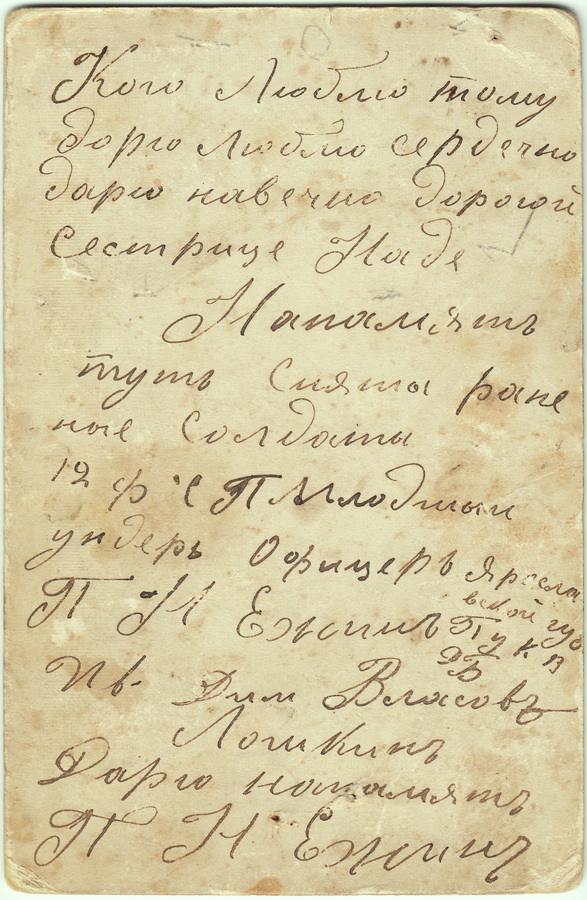 Кого Люблю тому
дорю Люблю сердечно
дарю навечно дорогой
Сестрице Наде
Напамять
туть Снята ране
ные Солдаты
12 Ф С П Млодшый
ундерь Офицеръ Ярсела
вской губ
П Н Ежинъ П у К В
Ив. Дим Власовъ
Лошкинъ
Дарю напамять
П Н Ежинъ